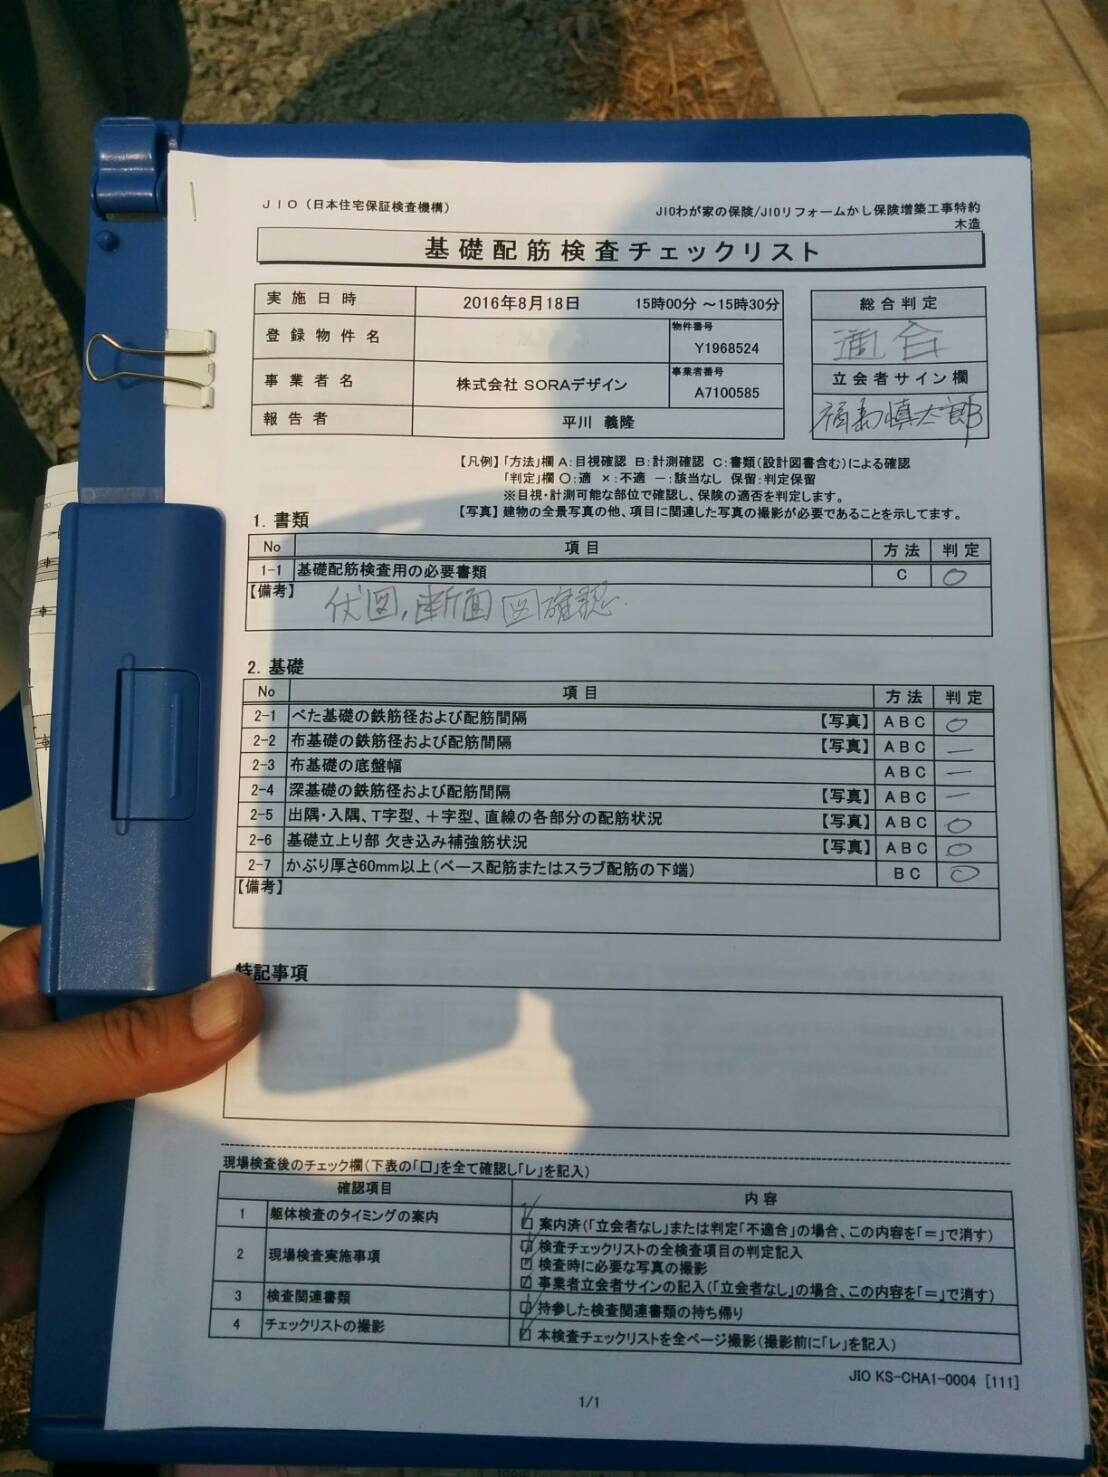 JIO（日本住宅保証検査機構）
JIOわが家の保険/JIOリフォームかし保険増築工事特約
木造
基礎配筋検査チェックリスト
実施日時 2016年8月18日 15時00分 ～15時30分
総合判定
登録物件名
物件番号
Y1968524
適合
事業者名 株式会社 SORAデザイン
事業者番号
A7100585
立会者サイン欄
報告者 平川 義隆
福島慎太郎
【凡例】「方法」欄 A：目視確認 B：計測確認 C：書類（設計図書含む）による確認
「判定」欄 〇：適 ×：不適 －：該当なし 保留：判定保留
※目視・計測可能な部位で確認し、保険の適否を判定します。
【写真】建物の全景写真の他、項目に関連した写真の撮影が必要であることを示してます。
1. 書類
No 項目 方法 判定
1-1 基礎配筋検査用の必要書類 C 〇
【備考】
伏図,断面図確認.
2. 基礎
No 項目 方法 判定
2-1 べた基礎の鉄筋径および配筋間隔 【写真】 A B C 〇
2-2 布基礎の鉄筋径および配筋間隔 【写真】 A B C －
2-3 布基礎の底盤幅 A B C －
2-4 深基礎の鉄筋径および配筋間隔 【写真】 A B C －
2-5 出隅・入隅、T字型、＋字型、直線の各部分の配筋状況 【写真】 A B C 〇
2-6 基礎立上り部 欠き込み補強筋状況 【写真】 A B C 〇
2-7 かぶり厚さ60mm以上（ベース配筋またはスラブ配筋の下端） B C 〇
【備考】
特記事項
現場検査後のチェック欄（下表の「□」を全て確認し「レ」を記入）
確認項目 内容
1 躯体検査のタイミングの案内 ☑ 案内済（「立会者なし」または判定「不適合」の場合、この内容を「＝」で消す）
2 現場検査実施事項 ☑ 検査チェックリストの全検査項目の判定記入
☑ 検査時に必要な写真の撮影
☑ 事業者立会者サインの記入（「立会者なし」の場合、この内容を「＝」で消す）
3 検査関連書類 ☑ 持参した検査関連書類の持ち帰り
4 チェックリストの撮影 ☑ 本検査チェックリストを全ページ撮影（撮影前に「レ」を記入）
JIO KS-CHA1-0004 [111]
1/1